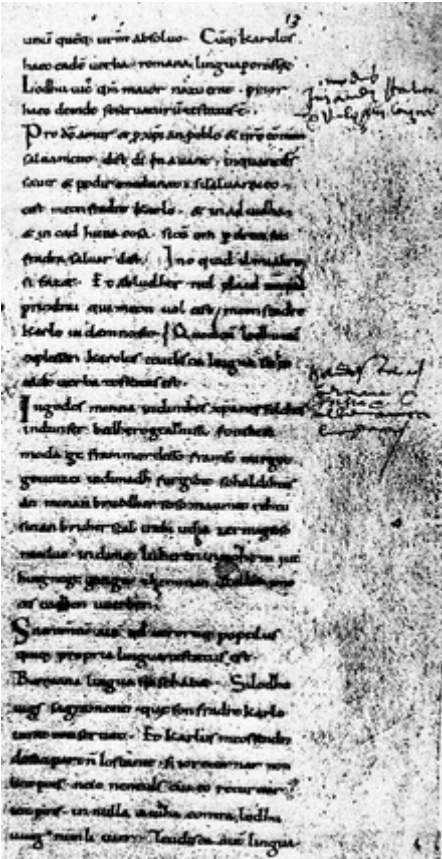 13
unū quēq; urm absoluo. Cūq; karolus
haec eadē uerba romana lingua perorasset
Lodhuuic qm maior natu erat prior
haec deinde se seruaturū testatus ē.
Pro dō amur et p xpian poblo et nro cōmun
saluament dist di in auant inquantds
sauir et podir medunat si saluaraieo
cist meon fradre karlo et in aiudha
et in cad huna cosa sicū om p dreit son
fradra saluar dist. Ino quid il mialtre
si fazet. Et abludher nul plaid nūquā
prindrai qui meon uol cist meon fradre
karle in damno sit. Quod cū lodhuuic
explesset karolus teudisca lingua sic hec
eadē uerba testatus est.
In godes minna indinthes xpanes folches
indunser bedhero gealtnissi fonthese
moda ge frammordesso framso mirgot
geuuizci indimadh furgibit sohaldihtes
an minan bruodher soso man mit rehtu
sinan bruher scal inthi utha zermigsoso
maduo. indimit luheren innohein iut
hing nege gango zheminan uuillon imo
ce scadhen uuerhen.
Sacramentū aut qd utrorumq; populus
quiq; propria lingua testatus est.
Romana lingua sic se habet. Silodhu
uigs sagrament. que son fradre karlo
iurat conseruat. Et karlus meossendra
desuo partn lostanit. si ioreturnar non
lint pois. neio neneuls cui eo returnar
int pois. in nulla aiudha contra lodhu
uuig nunli iuer. Teudisca aut lingua